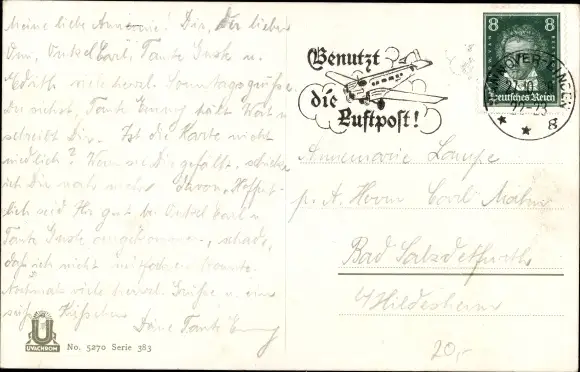 Meine liebe Annemie! Dir, Der lieben
Om, Onkel Carl, Tante Guste u.
Edith viele herzl. Sonntagsgrüße.
Du siehst, Tante Emmy hält Wort u.
schreibt Dir. Ist die Karte nicht
niedlich? Wenn sie Dir gefällt, schicke
ich Dir noch mehr davon. Hoffent-
lich seid Ihr gut bei Onkel Carl u.
Tante Guste angekommen, schade,
daß ich nicht mitfahren konnte.
Nochmals viele herzl. Grüße u. ein
süßes Küßchen
Deine Tante Emmy
UVACHROM
No. 5270 Serie 383
Benutzt
die
Luftpost!
8 8
Deutsches Reich
HANNOVER-LINDEN
* * 8
Annemarie Lampe
p. A. Herrn Carl
Bad Salzdetfurth
b/Hildesheim
20,-